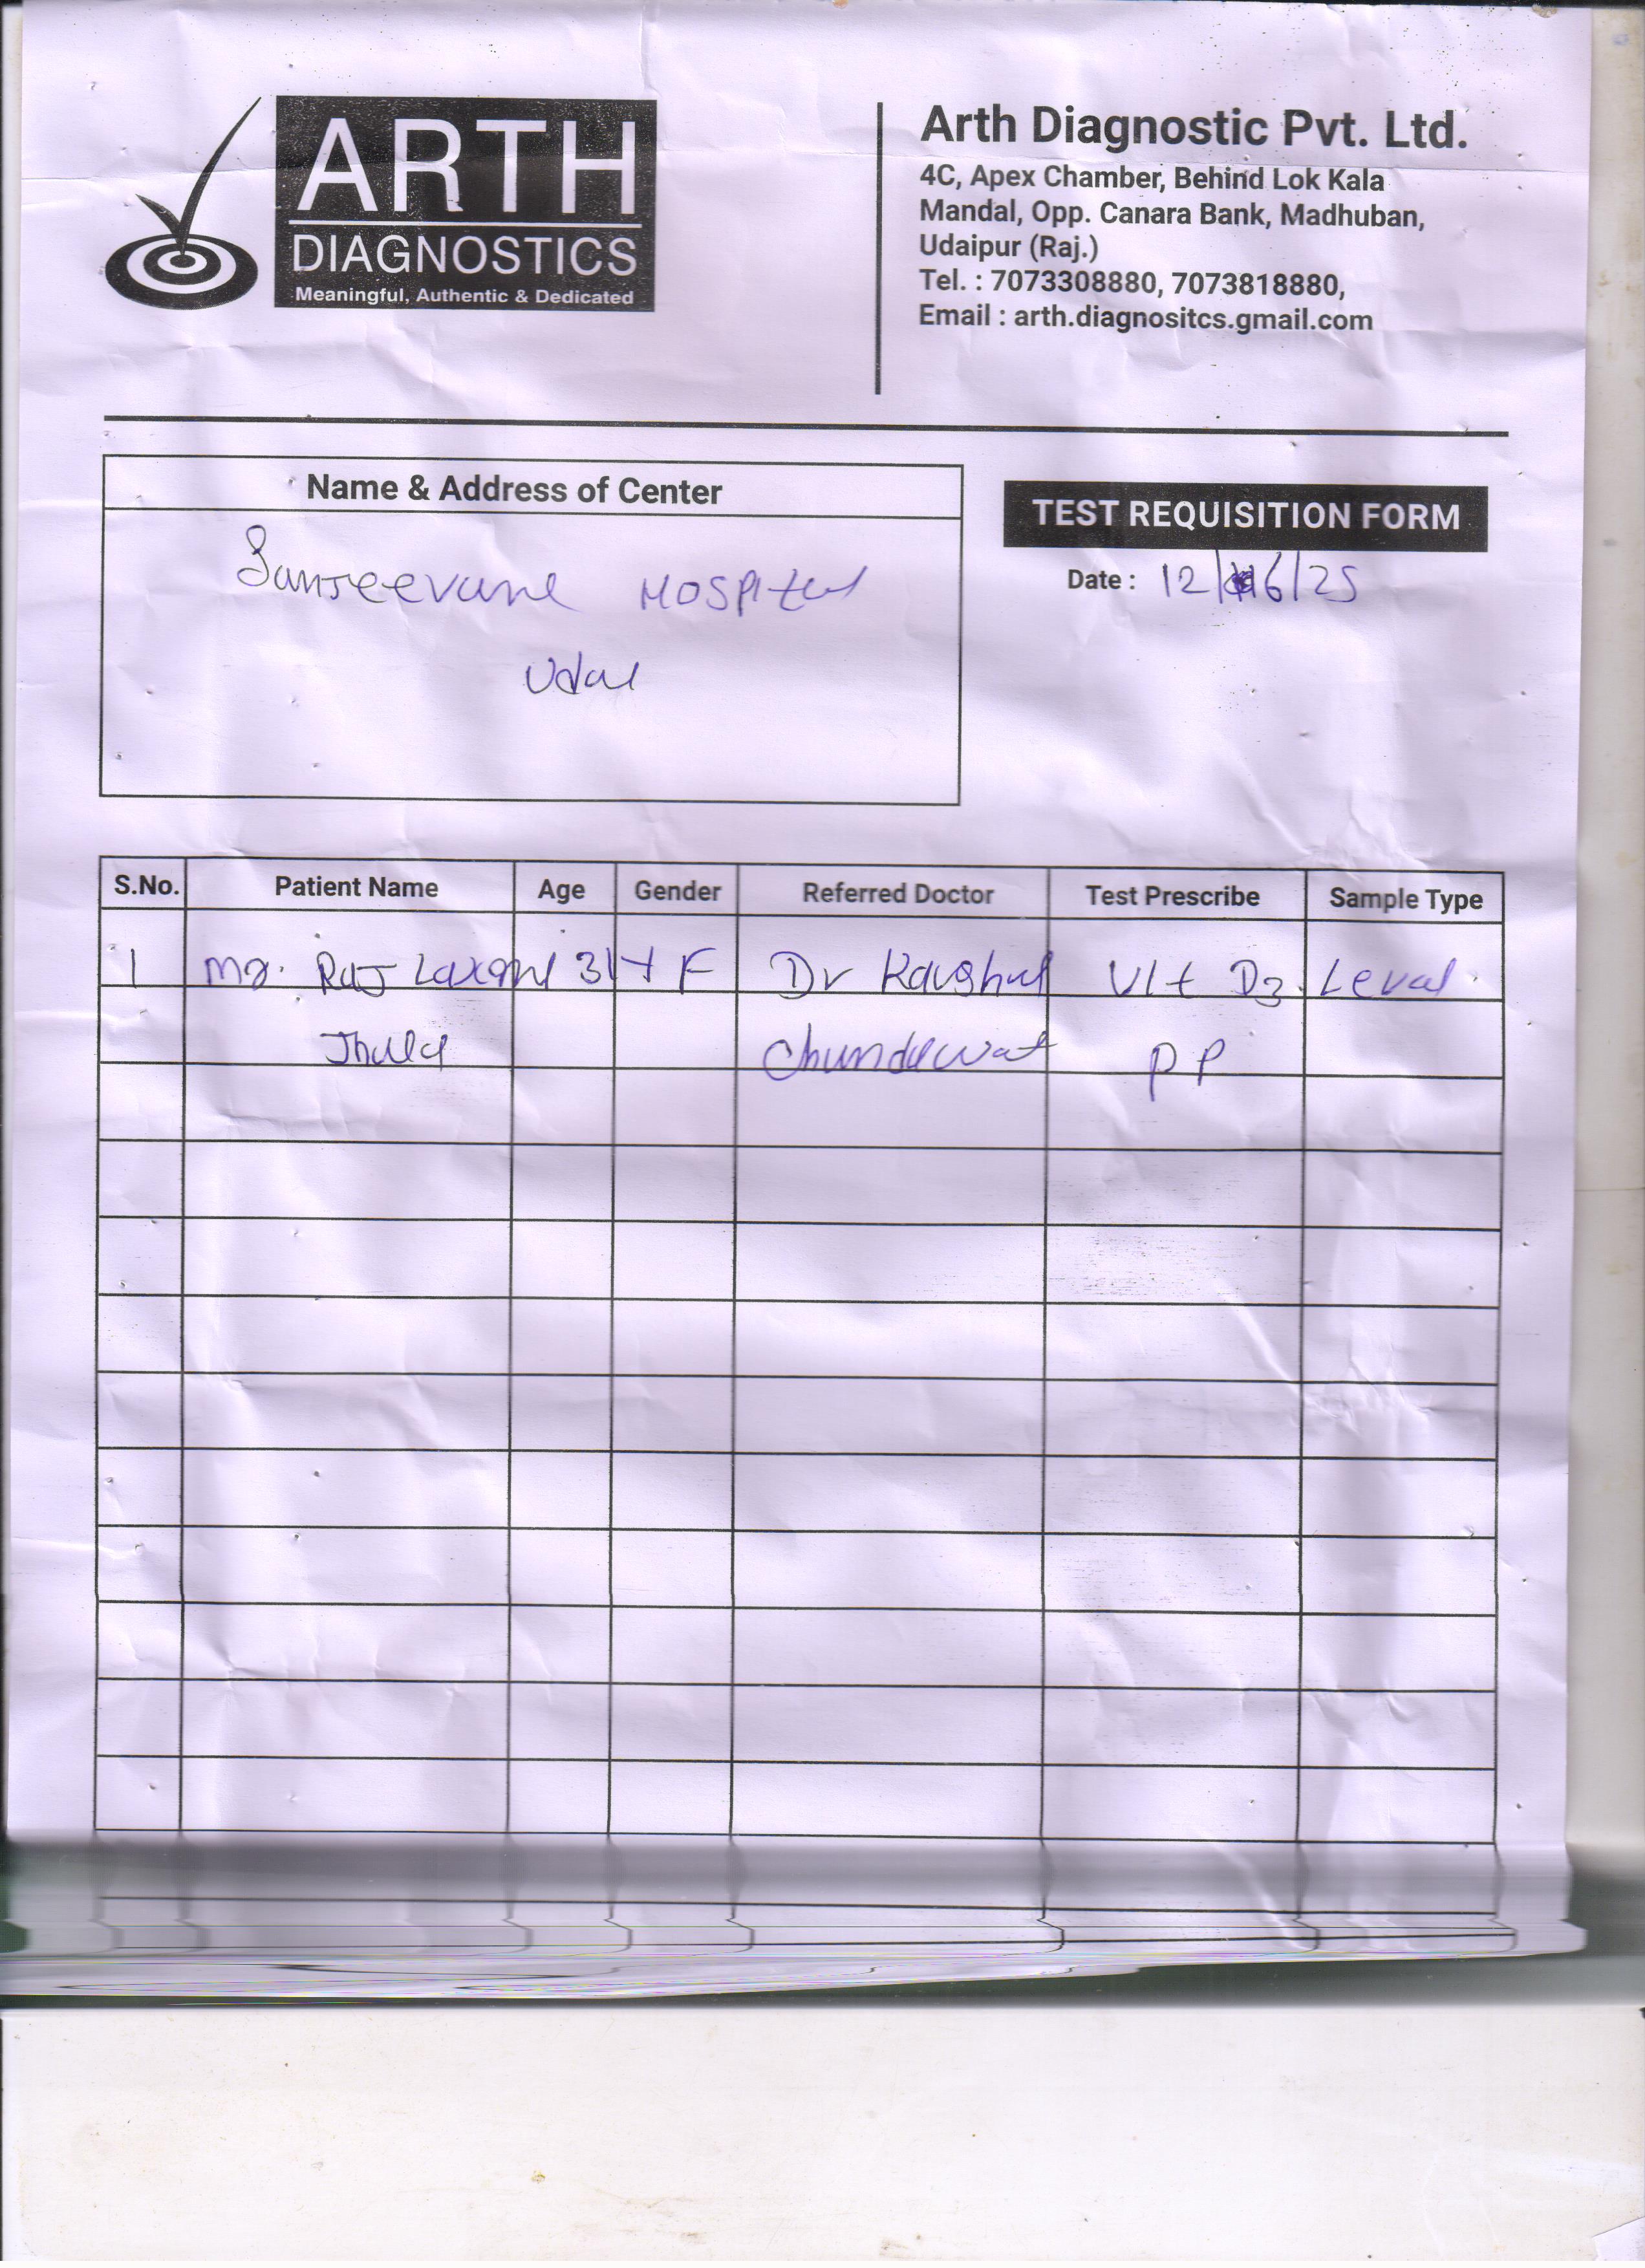 ARTH
DIAGNOSTICS
Meaningful, Authentic & Dedicated
Arth Diagnostic Pvt. Ltd.
4C, Apex Chamber, Behind Lok Kala
Mandal, Opp. Canara Bank, Madhuban,
Udaipur (Raj.)
Tel. : 7073308880, 7073818880,
Email : arth.diagnositcs.gmail.com
Name & Address of Center
TEST REQUISITION FORM
Hospital
Date : 12/6/25
S.No. Patient Name Age Gender Referred Doctor Test Prescribe Sample Type
1 Raj Laxmi 31 F Dr Kaushal Vit D3 Leval
Chundawat PP